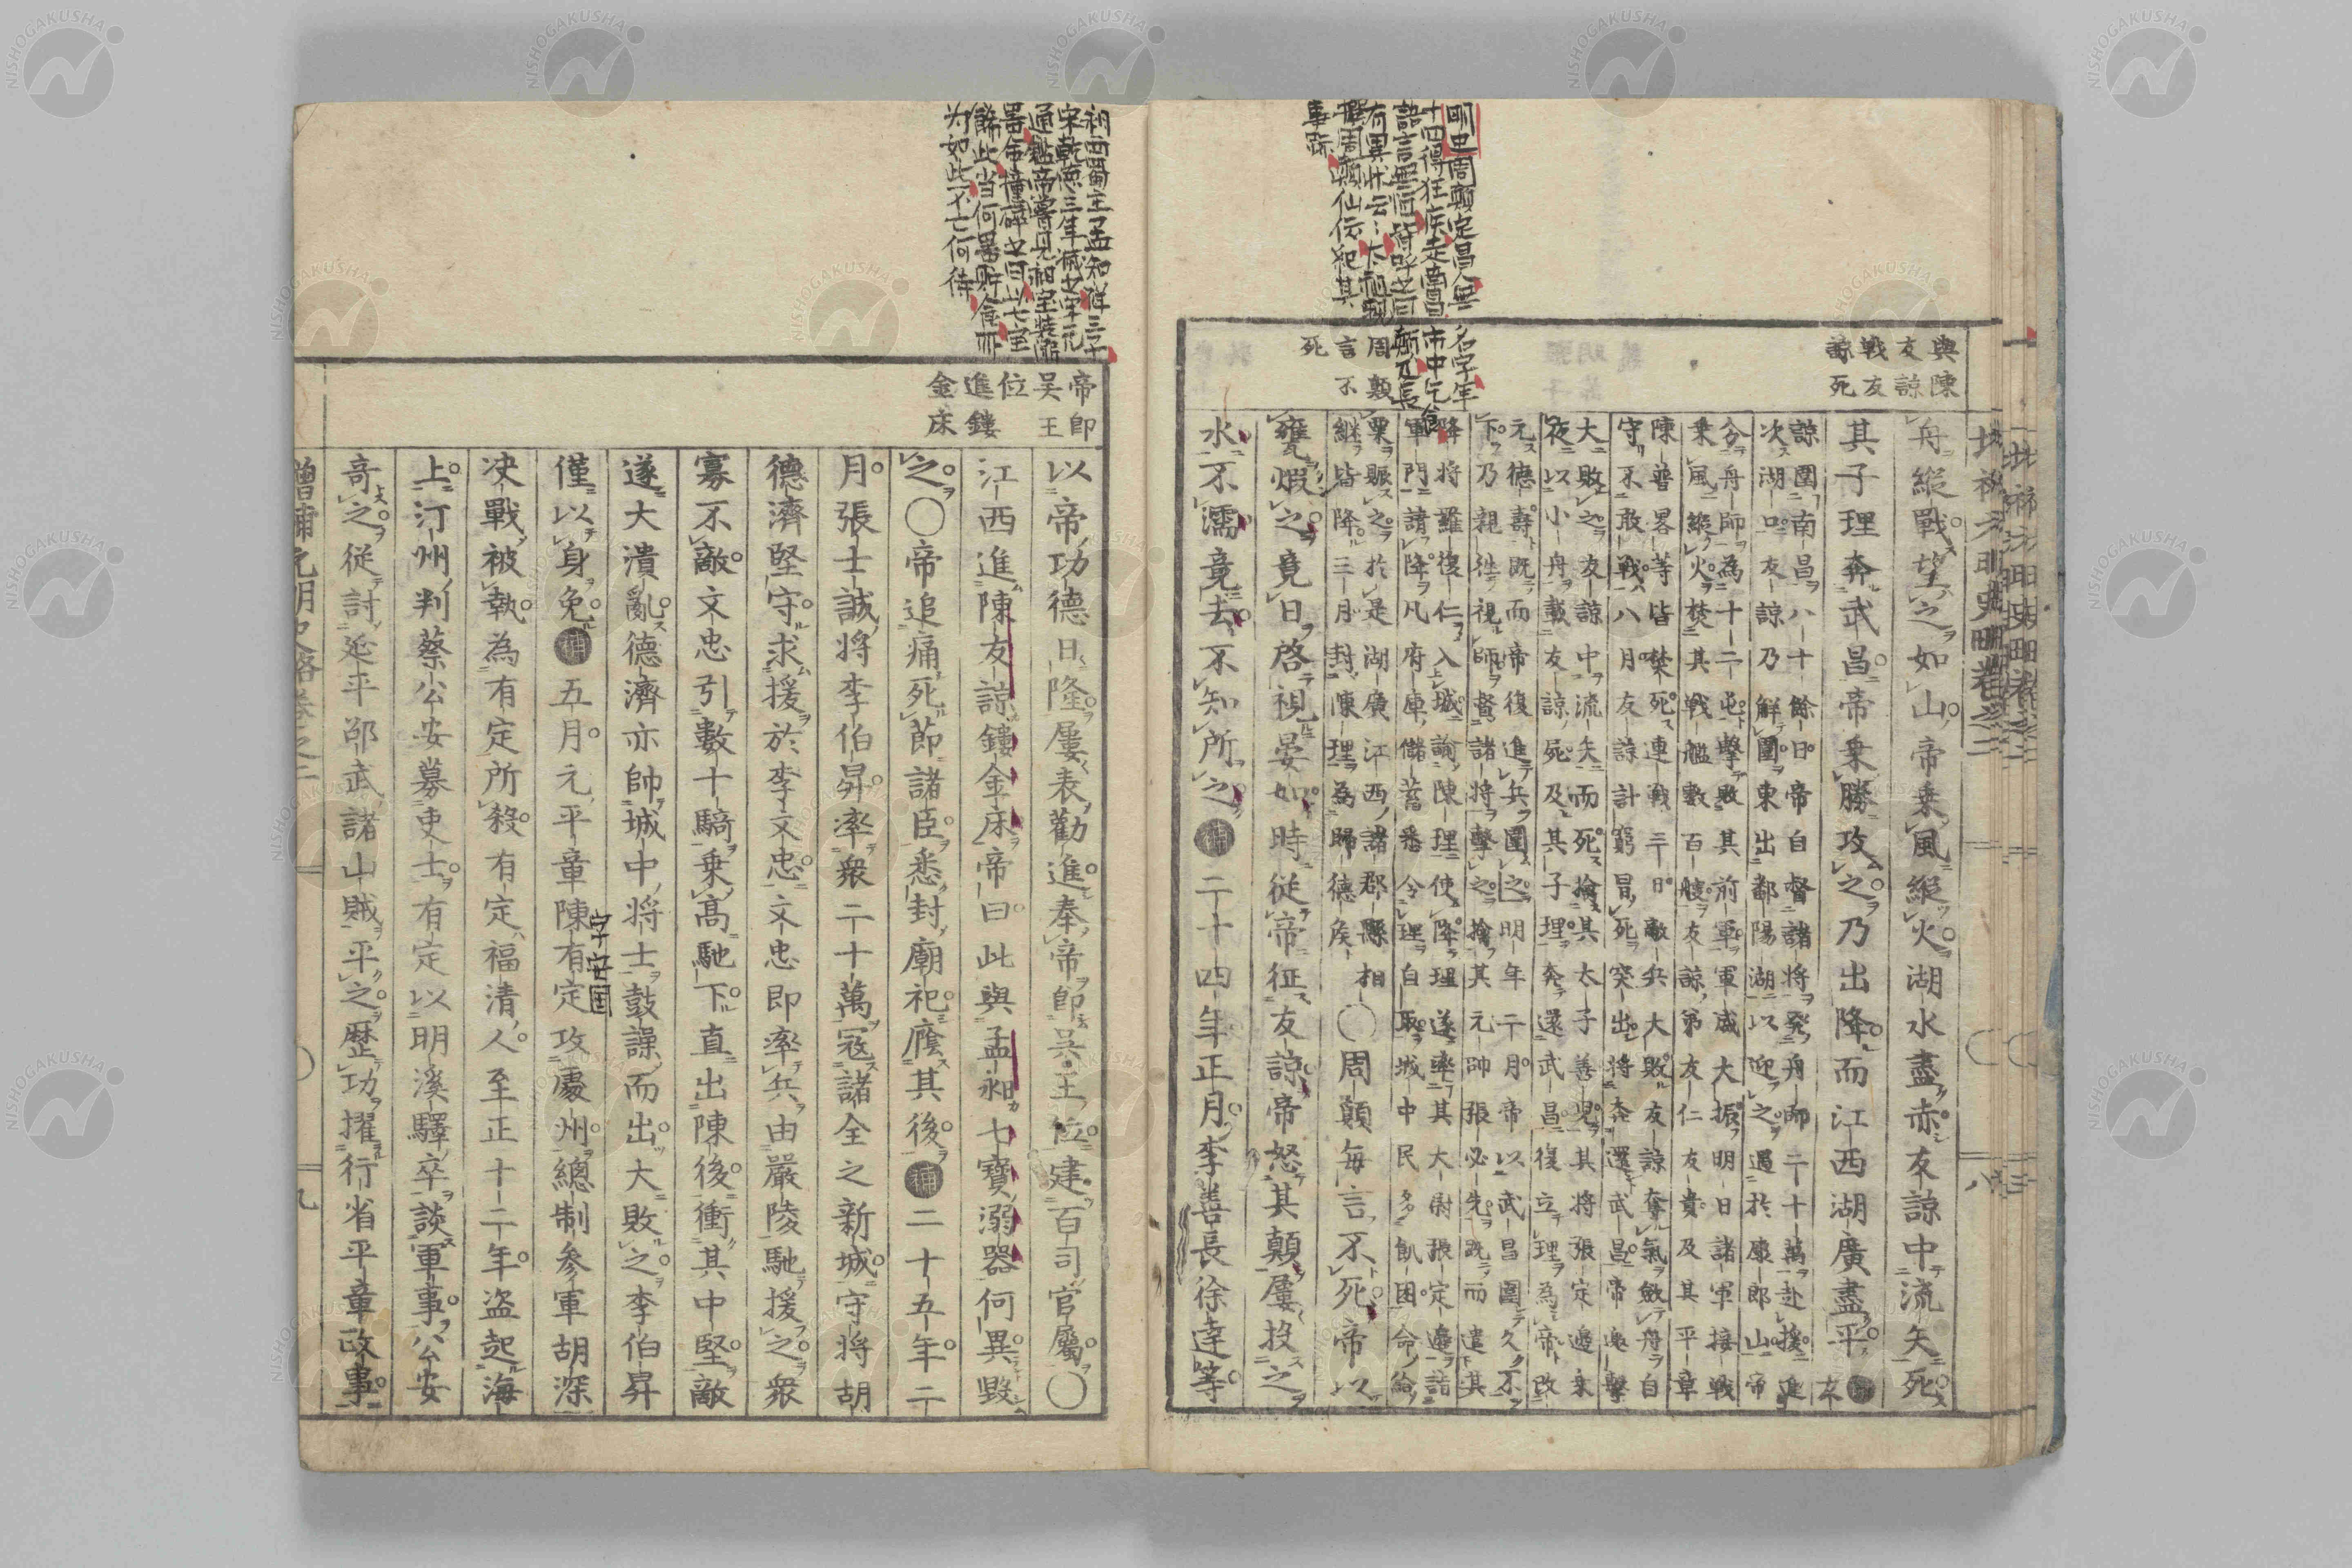 與陳
友諒
戰友
諒死
舟縱戰望之如山帝乗風縱火湖水盡赤友諒中流矢死
其子理奔武昌帝乗勝攻之乃出降而江西湖廣盡平補友
諒圍南昌八十餘日帝自督諸將発舟師二十萬赴援進
次湖口友諒乃解圍東出鄱陽湖以迎之遇於康郎山帝
分舟師為十二屯擊敗其前軍軍威大振明日諸軍接戰
乗風縱火焚其戰艦數百艘友諒弟友仁友貴及其平章
陳普畧等皆焚死連戰三日敵兵大敗友諒奪氣斂舟自
守不敢戰八月友諒計窮冒死突出將奔還武昌帝邀擊
大敗之友諒中流矢而死擒其太子善児其將張定邊乗
夜以小舟載友諒死及其子理奔還武昌復立理為帝改
元德壽既而帝復進兵圍之明年二月帝以武昌圍久不
下乃親往視師督諸將擊之擒其元帥張必先既而遣其
降將羅復仁入城諭陳理使降理遂率其大尉張定邊詣
軍門請降凡府庫儲蓄悉令理自取城中民多飢困命給
粟賑之於是湖廣江西諸郡縣相
継皆降三月封陳理為歸德侯
〇周顛毎言不死帝以
甕煆之竟日啓視晏如時従帝征友諒帝怒其顛屢投之
水不濡竟去不知所之補二十四年正月李善長徐達等
周顛
言不
死
明史周顛定昌人無名字年
十四得狂疾走南昌市中乞食
語言無恒皆呼之曰顛元長
有異状云〻太祖親
撰周顛仙伝紀其
事跡
帝即
吴王
位
進鏤
金床
以帝功德日隆屢表勸進奉帝即吴王位建百司官屬〇
江西進陳友諒鏤金床帝曰此與孟昶七寶溺器何異毀
之〇帝追痛死節諸臣悉封廟祀廕其後補二十五年二
月張士誠將李伯昇率衆二十萬寇諸全之新城守將胡
德濟堅守求援於李文忠文忠即率兵由嚴陵馳援之衆
寡不敵文忠引數十騎乗高馳下直出陳後衝其中堅敵
遂大潰亂德濟亦帥城中將士鼓譟而出大敗之李伯昇
僅以身免補五月元平章陳有定攻處州總制參軍胡深
字安国
决戰被執為有定所殺有定福清人至正十二年盗起海
上汀州判蔡公安募吏士有定以明溪驛卒談軍事公安
奇之従討延平邵武諸山賊平之歴功擢行省平章政事
昶西蜀主孟知祥三子
宋乾徳三年滅之宋元
通鑑帝嘗見昶宝装溺
器命撞碎之曰以七宝
餙此当何器貯食所
为如此不亡何待
増補元明史略巻之二 九